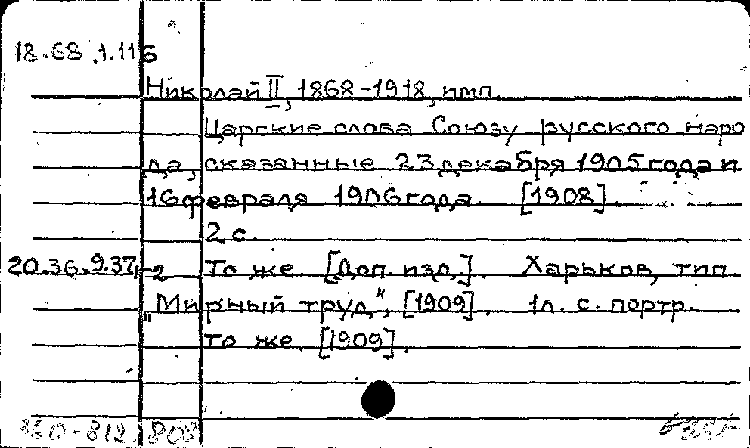 18.68.1.116
Николай II, 1868-1918, имп.
Царские слова Союзу русского наро
да, сказанные 23 декабря 1905 года и
16 февраля 1906 года. [1908].
2 с.
20.36.9.37,1-2 То же [Доп. изд.]. Харьков, тип.
"Мирный труд", [1909]. 1л. с. портр.
То же. [1909].